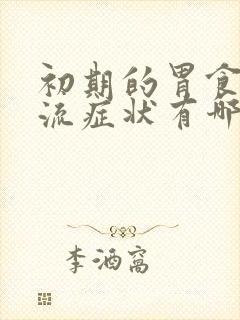 初期的胃食
流症状有哪
李酒窝